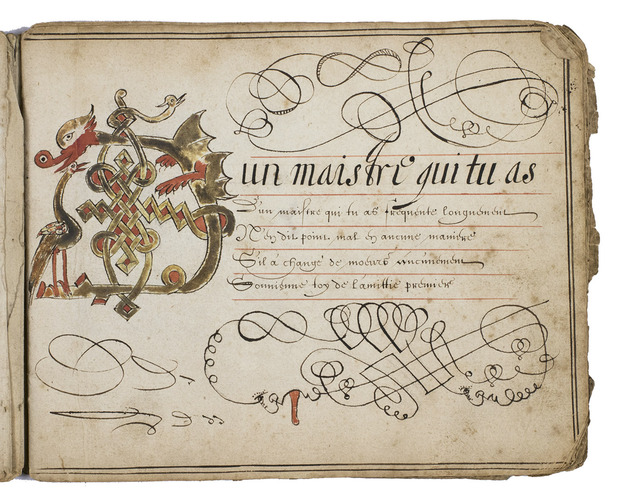 Dun maistre qui tu as
D'un maistre qui tu as frequente longuement
N'en dit point mal en aucune maniere
S'il a change de moeurs aucunement
Souvienne toy de lamittie premier